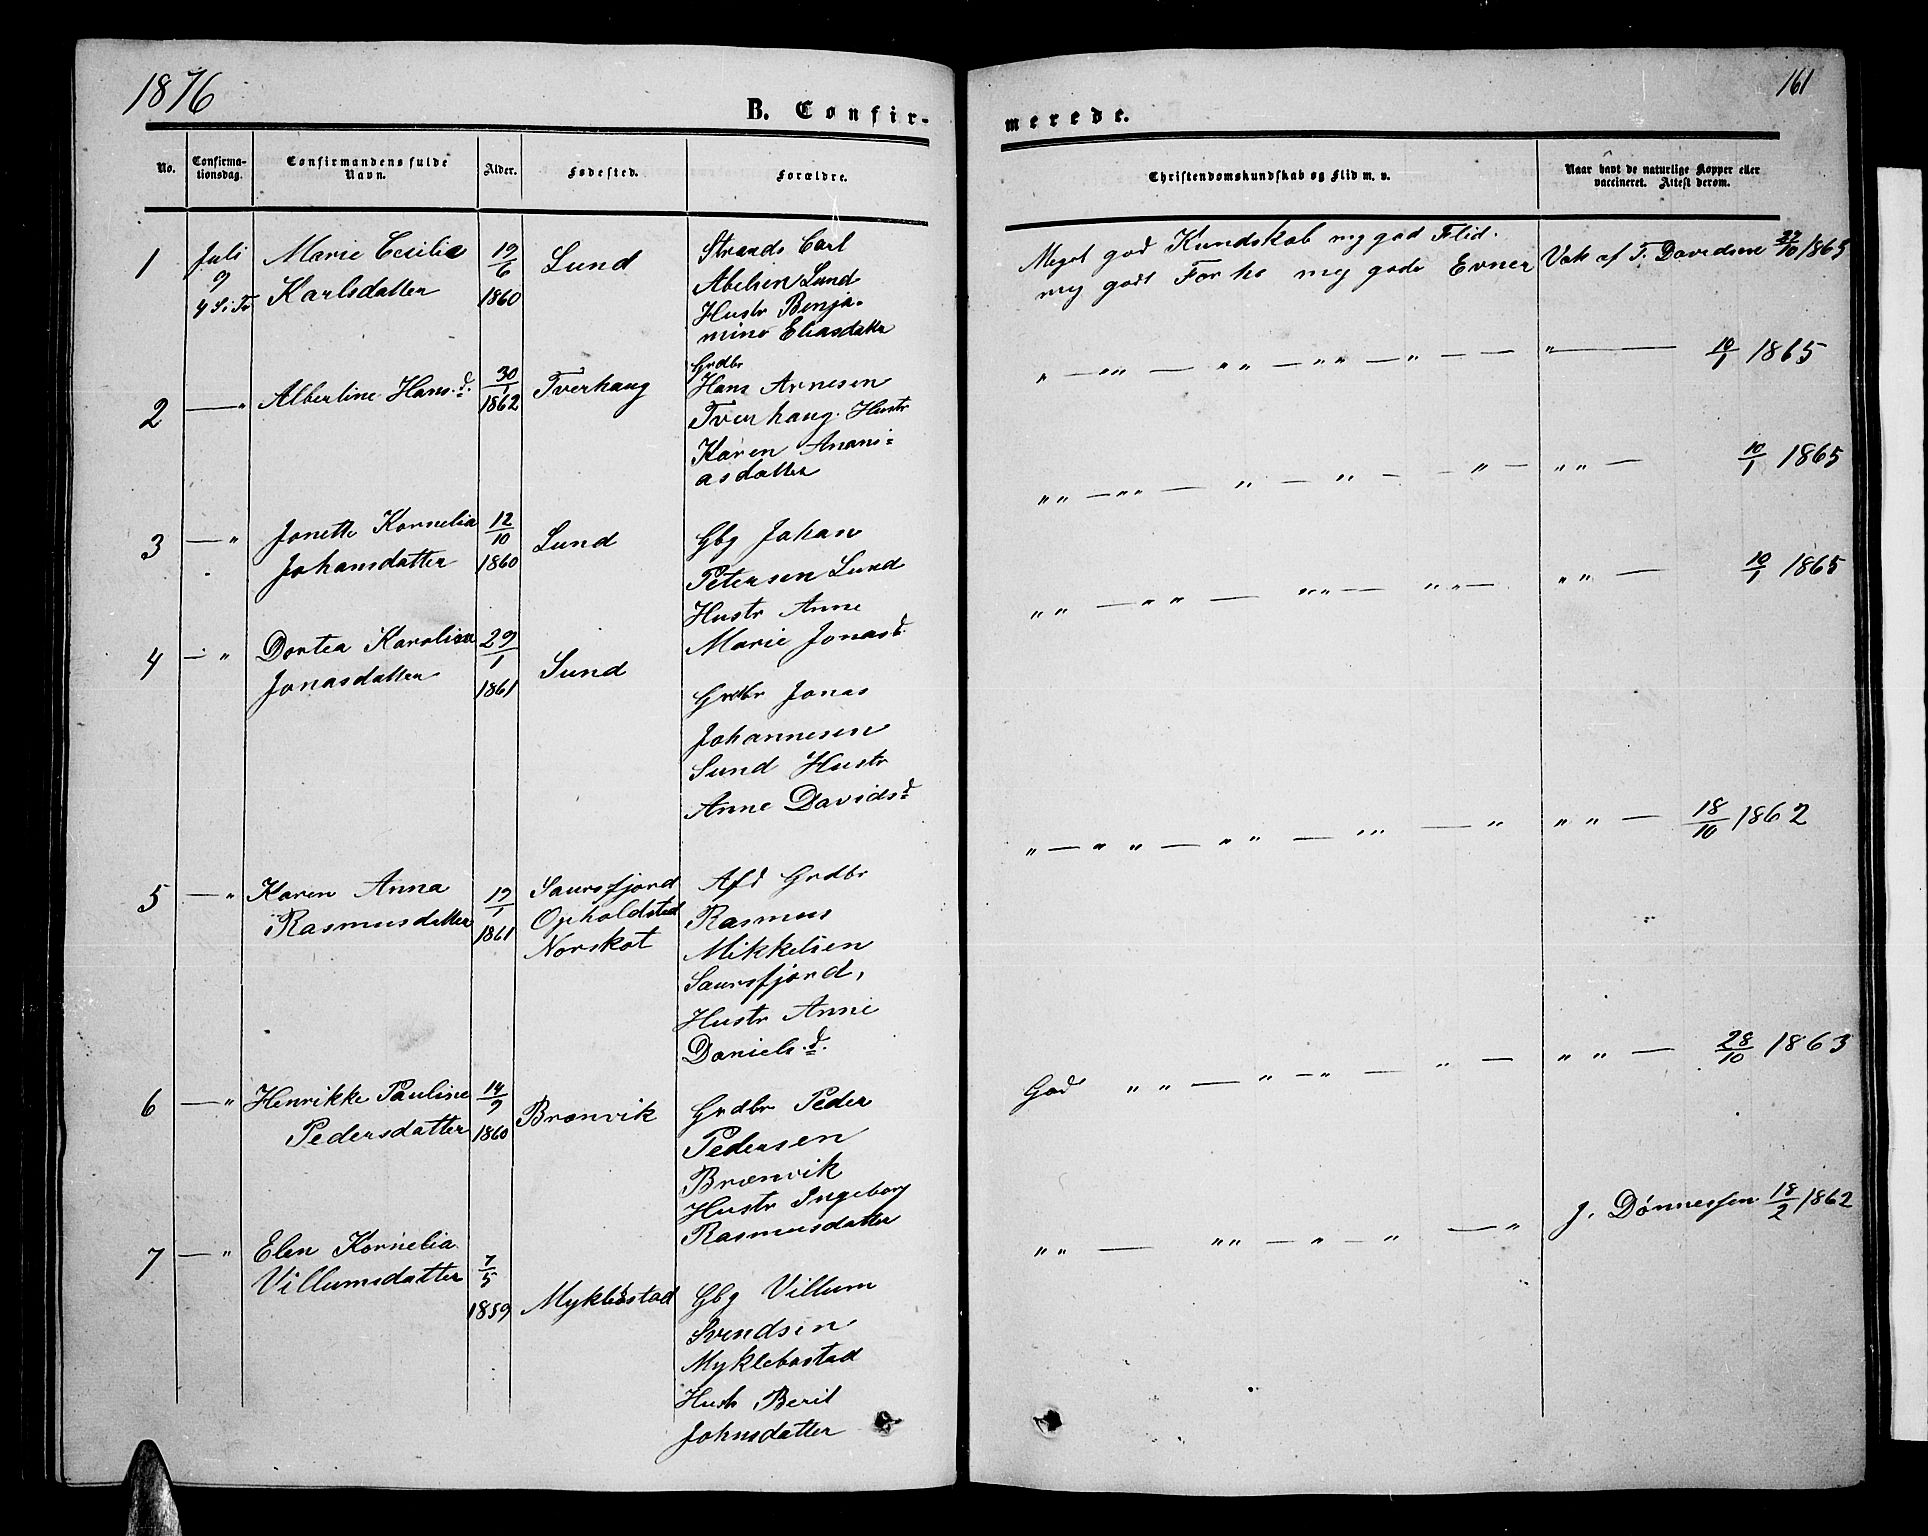 1876
B. Confir-
No.
Confirma-
tionsdag.
Confirmandens fulde
Navn.
Alder.
Fødested.
Forældre.
1
Juli
9
4 S. Tr
Marie Cecilie
Karlsdatter
19/6
1860
Lund
Strands. Carl
Abelsen Lund
Hustr Benja-
mine Eliasdatter
2
— "
Albertine Hans.d.
30/1
1862
Tverhaug
Grdbr
Hans Arnesen
Tverhaug. Hustr
Karen Anani-
asdatter
3
— "
Jonette Kornelia
Johansdatter
12/10
1860
Lund
Gbg Johan
Petersen Lund
Hustr Anne
Marie Jonasd.
4
— "
Dortea Karolina
Jonasdatter
29/1
1861
Sund
Grdbr Jonas
Johannesen
Sund Hustr
Anne Davidsd
5
— "
Karen Anna
Rasmusdatter
19/1
1861
Saursfjord
Opholdsted
Norskot
Afd Grdbr
Rasmus
Mikkelsen
Saursfjord,
Hustr Anne
Daniels.d.
6
— "
Henrikke Pauline
Pedersdatter
14/9
1860
Brænvik
Grdbr Peder
Pedersen
Brænvik
Hustr Ingeborg
Rasmusdatter
7
— "
Elen Kornelia
Villumsdatter
7/5
1859
Myklebostad
Gbg Villum
Svendsen
Myklebostad
Hustr Berit
Johnsdatter
161
merede.
Christendomskundskab og Flid m. v.
Naar havt de naturlige Kopper eller
vaccineret. Attest derom.
Meget god Kundskab mg god Flid.
meg godt Forho meg gode Evner
Vak af T. Davidsen 22/10 1865
" — "" — "" — "" — " — —
" — 10/1 1865
"" — "" — " — "" — " —
"" — 10/1 1865
"" — "" — "" — "" —
"" — 10/1 1865
" — " " — " " — "" — "
"" — 18/10 1862
God "" — " — " — " —
"" — 28/10 1863
"" — "" — " — " — "
J. Dønnessen 18/2 1862